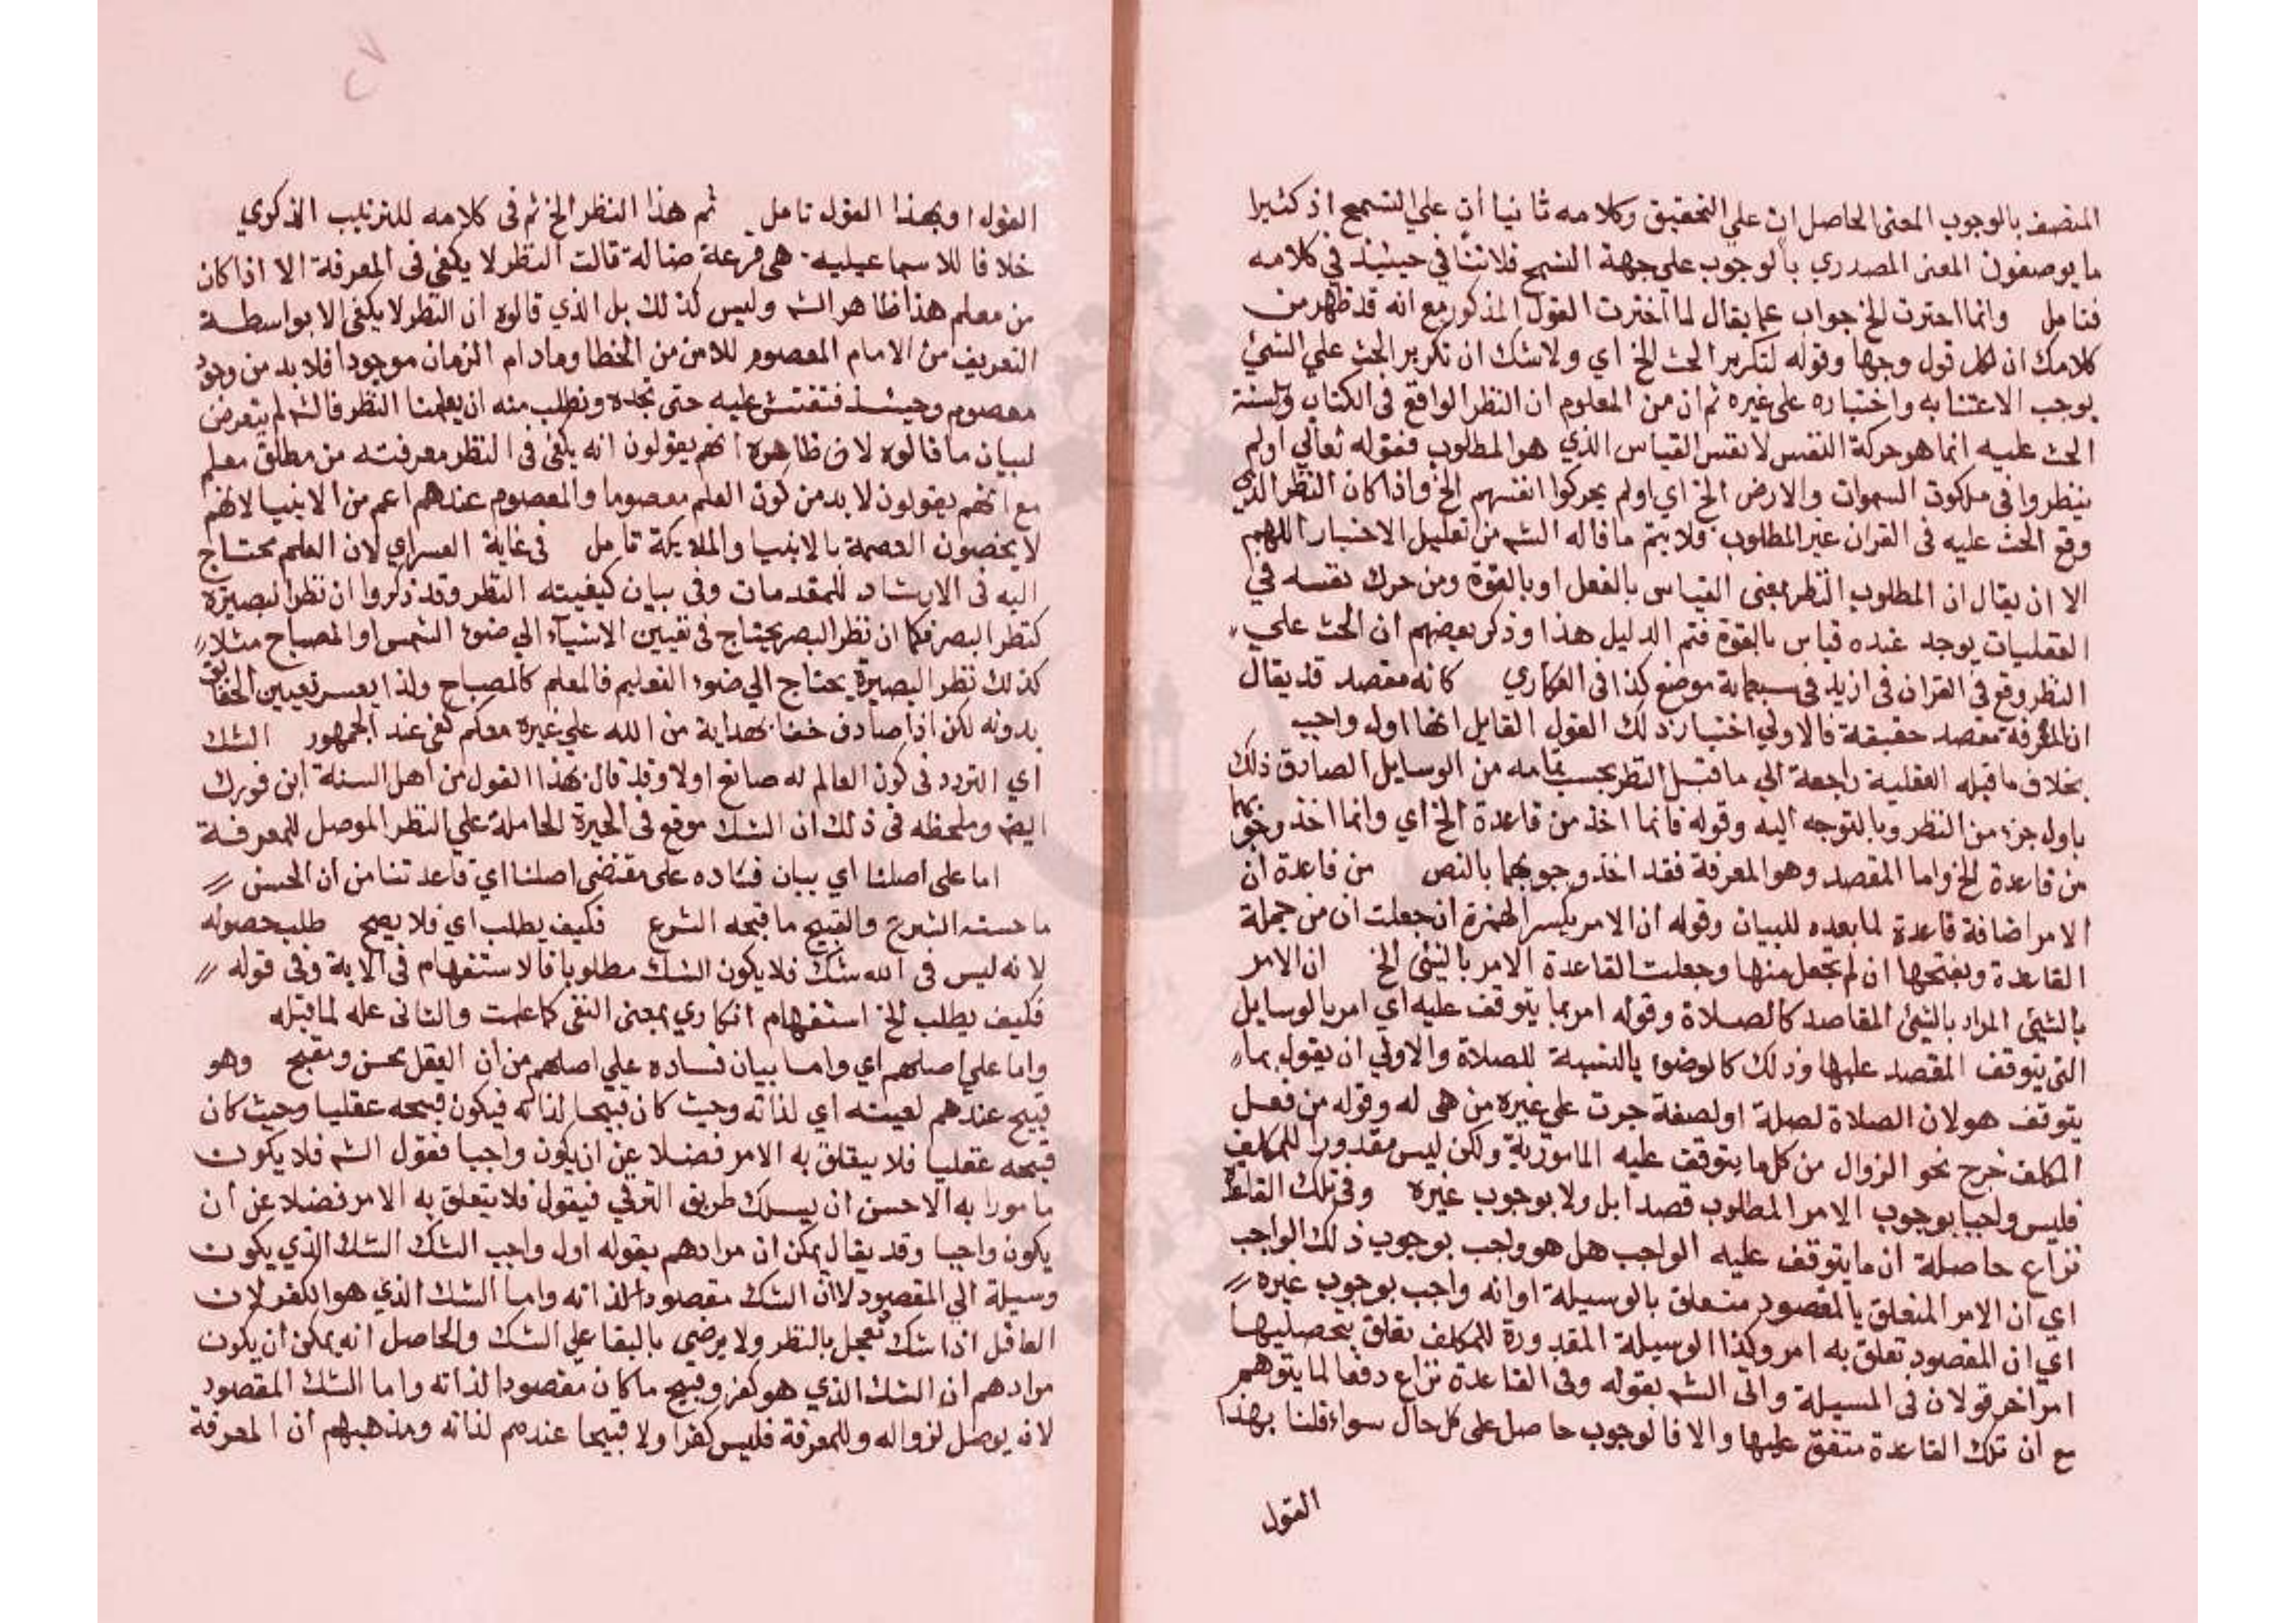 المتصف بالوجوب المعنى الحاصل ان علي التحقيق وكلامه ثانيا أن علي التسمح اذ كثيرا
ما يوصفون المعنى المصدري بالوجوب علي جهة التسمح فلا تنافي حينئذ في كلامه
فتامل وانما اخترت الخ جواب عما يقال لما اخترت القول المذكور مع انه قد ظهر من
كلامك ان لكل قول وجها وقوله لتكرير الحث الخ اي ولا شك ان تكرير الحث علي الشئ
يوجب الاعتنا به واختياره على غيره ثم ان من المعلوم ان النظر الواقع في الكتاب والسنة
الحث عليه انما هو حركة النفس لا نفس القياس الذي هو المطلوب فقوله تعالي اولم
ينظروا في ملكوت السموات والارض الخ اي اولم يحركوا انفسهم الخ واذا كان النظر الذي
وقع الحث عليه في القران غير المطلوب فلا يتم ما قاله الشم من تعليل الاختيار اللهم
الا ان يقال ان المطلوب النظر بمعنى القياس بالفعل او بالقوة ومن حرك نفسه في
العقليات يوجد عنده قياس بالقوة فتم الدليل هذا وذكر بعضهم ان الحث علي
النظر وقع في القران في ازيد في سبعماية موضع كذا في الفكاري كانه مقصد قد يقال
ان المعرفة مقصد حقيقة فالاولي اختيار ذلك القول القايل انها اول واجب
بخلاف ما قبله العقلية راجعة الي ما قبل النظر بحسب تمامه من الوسايل الصادق ذلك
باول جزء من النظر وبالتوجه اليه وقوله فانما اخذ من قاعدة الخ اي وانما اخذ وجوبها
من قاعدة الخ واما المقصد وهو المعرفة فقد اخذ وجوبها بالنص من قاعدة ان
الامر اضافة قاعدة لما بعده للبيان وقوله ان الامر بكسر الهمزة ان جعلت ان من جملة
القاعدة وبفتحها ان لم تجعل منها وجعلت القاعدة الامر بالشئ الخ ان الامر
بالشئ المراد بالشئ المقاصد كالصلاة وقوله امر بما يتوقف عليه اي امر بالوسايل
التى يتوقف المقصد عليها وذلك كالوضوء بالنسبة للصلاة والاولي ان يقول بما
يتوقف هو لان الصلاة لصلة او لصفة جرت علي غيره من هي له وقوله من فعل
المكلف خرج نحو الزوال من كل ما يتوقف عليه المامور به ولكن ليس مقدورا للمكلف
فليس واجبا بوجوب الامر المطلوب قصدا بل ولا بوجوب غيره وفى تلك القاعدة
نزاع حاصلة ان ما يتوقف عليه الواجب هل هو واجب بوجوب ذلك الواجب
اي ان الامر المتعلق بالمقصود متعلق بالوسيلة او انه واجب بوجوب غيره
اي ان المقصود تعلق به امر وكذا الوسيلة المقدورة للمكلف تعلق بتحصيلها
امر اخر قولان في المسيلة واتى الشم بقوله وفى القاعدة نزاع دفعا لما يتوهم
مع ان تلك القاعدة متفق عليها والا فالوجوب حاصل على كل حال سواء قلنا بهذا
القول
القول او بهذا القول تامل ثم هذا النظر الخ ثم فى كلامه للترتيب الذكري
خلافا للاسماعيليه هى فرعة ضالة قالت النظر لا يكفي في المعرفة الا اذا كان
من معلم هذا ظاهر الشم وليس كذلك بل الذي قالوه ان النظر لا يكفى الا بواسطة
التعريف من الامام المعصوم للامن من الخطا ومادام الزمان موجودا فلا بد من وجود
معصوم وحينئذ فتفتش عليه حتى تجده وتطلب منه ان يعلمنا النظر فالشم لم يتعرض
لبيان ما قالوه لان ظاهره انهم يقولون انه يكفى فى النظر معرفته من مطلق معلم
مع انهم يقولون لا بد من كون المعلم معصوما والمعصوم عندهم اعم من الانبيا لانهم
لا يخصون العصمة بالانبيا والملايكة تامل في غاية العسر اي لان المعلم محتاج
اليه فى الارشاد للمقدمات وفى بيان كيفيته النظر وقد ذكروا ان نظر البصيرة
كنظر البصر فكما ان نظر البصر يحتاج في تعيين الاشيآء الي ضوء الشمس او المصباح مثلا
كذلك نظر البصيرة يحتاج الي ضوء التعليم فالمعلم كالمصباح ولذا يعسر تعيين الحقايق
بدونه لكن اذا صادف بهداية من الله علي غيره معلم كفى عند الجمهور الشك
اي التردد فى كون العالم له صانع اولا وقد قال بهذا القول من اهل السنة ابن فورك
ايضا وملحظه فى ذلك ان الشك موقع فى الحيرة الحاملة علي النظر الموصل للمعرفة
اما على اصلنا اي بيان فساده على مقتضى اصلنا اي قاعدتنا من أن الحسن
ما حسنه الشرع والقبيح ما قبحه الشرع فكيف يطلب اي فلا يصح طلب حصوله
لانه ليس فى الله شك فلا يكون الشك مطلوبا فالاستفهام فى الاية وفي قوله
فكيف يطلب الخ استفهام انكاري بمعنى النفى كما علمت والثانى عله لما قبله
واما علي اصلهم اي واما بيان فساده علي اصلهم من أن العقل يحسن ويقبح وهو
قبيح عندهم لعينه اي لذاته وحيث كان قبيحا لذاته فيكون قبحه عقليا وحيث كان
قبحه عقليا فلا يتعلق به الامر فضلا عن ان يكون واجبا فقول الشم فلا يكون
مامورا به الاحسن ان يسلك طريق الترقي فيقول فلا يتعلق به الامر فضلا عن أن
يكون واجبا وقد يقال يمكن ان مرادهم بقوله اول واجب الشك الشك الذي يكون
وسيلة الي المقصود لا ان الشك مقصود لذاته واما الشك الذي هو الكفر لان
العاقل اذا شك تعجل بالنظر ولا يرضى بالبقا علي الشك والحاصل انه يمكن أن يكون
مرادهم ان الشك الذي هو كفر وقبيح ما كان مقصودا لذاته واما الشك المقصود
لانه يوصل لزواله وللمعرفة فليس كفرا ولا قبيحا عندهم لذاته ومذهبهم أن المعرفة